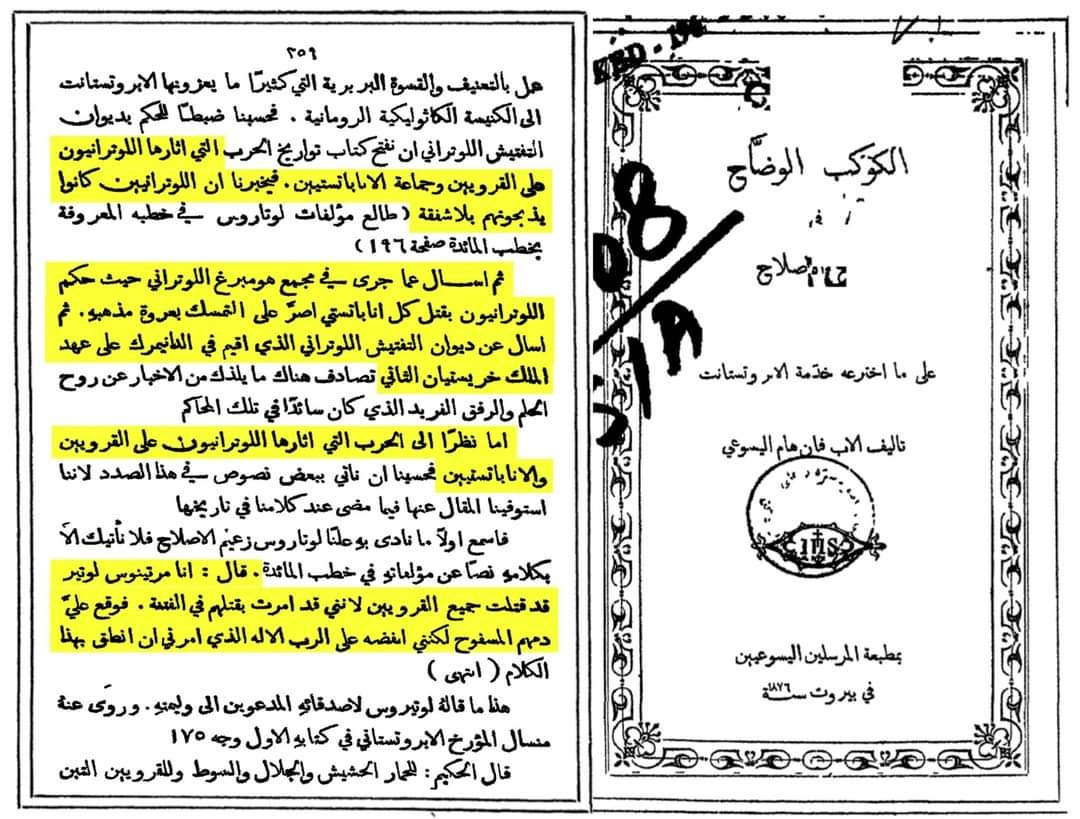 الكوكب الوضَّاح
في
على ما اخترعه خدَمة الابروتستانت
تاليف الاب فان هام اليسوعي
IHS
بمطبعة المرسلين اليسوعيين
في بيروت سنة ١٨٧٦
٢٥٩
عمل بالتعنيف والقسوة البربرية التي كثيرًا ما يعزونها الابروتستانت
الى الكنيسة الكاثوليكية الرومانية . فحسبنا ضبطًا للحكم بديوان
التفتيش اللوتراني ان نفتح كتاب تواريخ الحرب التي اثارها اللوترانيون
على القرويين وجماعة الاناباتستيين . فيخبرنا ان اللوترانيين كانوا
يذبحونهم بلا شفقة ( طالع مؤلفات لوتاروس في خطبه المعروفة
بخطب المائدة صفحة ١٩٦ )
ثم اسال عما جرى في مجمع هومبرغ اللوتراني حيث حكم
اللوترانيون بقتل كل اناباتستي اصرَّ على التمسك بعروة مذهبه . ثم
اسال عن ديوان التفتيش اللوتراني الذي اقيم في الدانيمرك على عهد
الملك خريستيان الثاني تصادف هناك ما يلذك من الاخبار عن روح
الحلم والرفق الفريد الذي كان سائدًا في تلك المحاكم
اما نظرًا الى الحرب التي اثارها اللوترانيون على القرويين
والاناباتستيين فحسبنا ان ناتي ببعض نصوص في هذا الصدد لاننا
استوفينا المقال عنها فيما مضى عند كلامنا في تاريخها
فاسمع اولًا ما نادى به علنًا لوتاروس زعيم الاصلاح فلا نأتيك الَّا
بكلامه نصًا عن مؤلفاته في خطب المائدة . قال : انا مرتينوس لوتير
قد قتلت جميع القرويين لانني قد امرت بقتلهم في الفتنة . فوقع عليَّ
دمهم المسفوح لكنني انفضه على الرب الاله الذي امرني ان انطق بهذا
الكلام ( انتهى )
هذا ما قالهُ لوتيروس لاصدقائهِ المدعوين الى وليمتهِ . وروَى عنهُ
منسال المؤرخ الابروتستاني في كتابه الاول وجه ١٧٥
قال الحكيم : للحمار الحشيش والجلال والسوط وللقرويين التبن